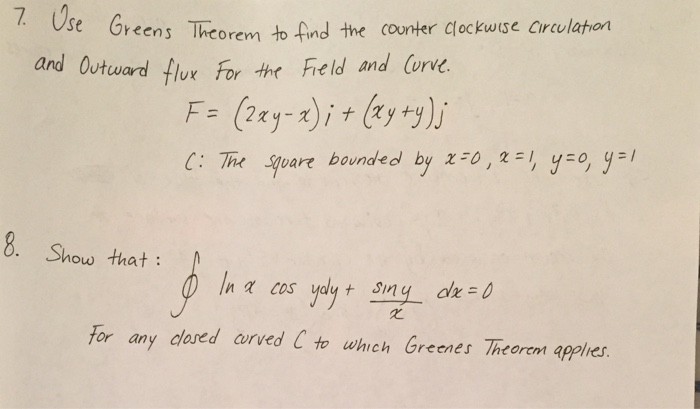 7. Use Greens Theorem to find the counter clockwise circulation
and Outward flux For the Field and Curve.
F = (2xy-x)i + (xy+y)j
C: The square bounded by x=0, x=1, y=0, y=1
8. Show that: ∮ ln x cos y dy + sin y / x dx = 0
For any closed curved C to which Greenes Theorem applies.